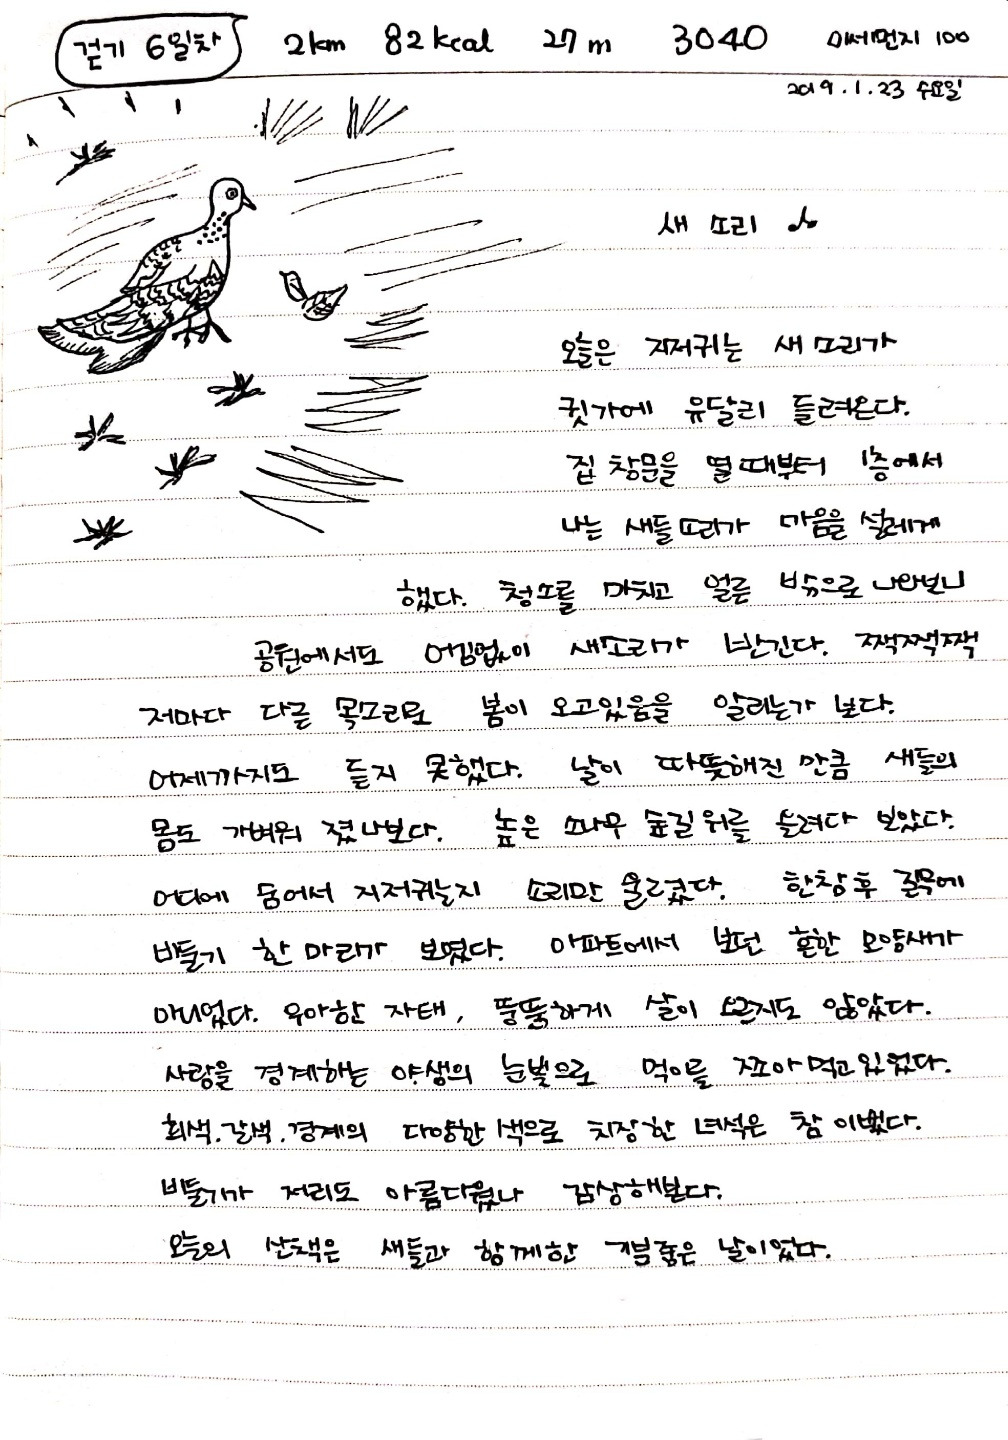 걷기 6일차 2km 82kcal 27m 3040 미세먼지 100
2019.1.23 수요일
새 소리 ♪
오늘은 지저귀는 새 소리가
귓가에 유달리 들려온다.
집 창문을 열 때부터 1층에서
나는 새들 소리가 마음을 설레게
했다. 청소를 마치고 얼른 밖으로 나와보니
공원에서도 어김없이 새소리가 반긴다. 짹짹짹
저마다 다른 목소리로 봄이 오고있음을 알리는가 보다.
어제까지도 듣지 못했다. 날이 따뜻해진 만큼 새들의
몸도 가벼워 졌나보다. 높은 소나무 숲길 위를 올려다 보았다.
어디에 숨어서 지저귀는지 소리만 울렸다. 한참 후 길목에
비둘기 한 마리가 보였다. 아파트에서 보던 흔한 모양새가
아니었다. 우아한 자태, 뚱뚱하게 살이 오르지도 않았다.
사람을 경계하는 야생의 눈빛으로 먹이를 쪼아 먹고 있었다.
회색.갈색.경계의 다양한 색으로 치장한 녀석은 참 이뻤다.
비둘기가 저리도 아름다웠나 감상해본다.
오늘의 산책은 새들과 함께한 기분좋은 날이었다.